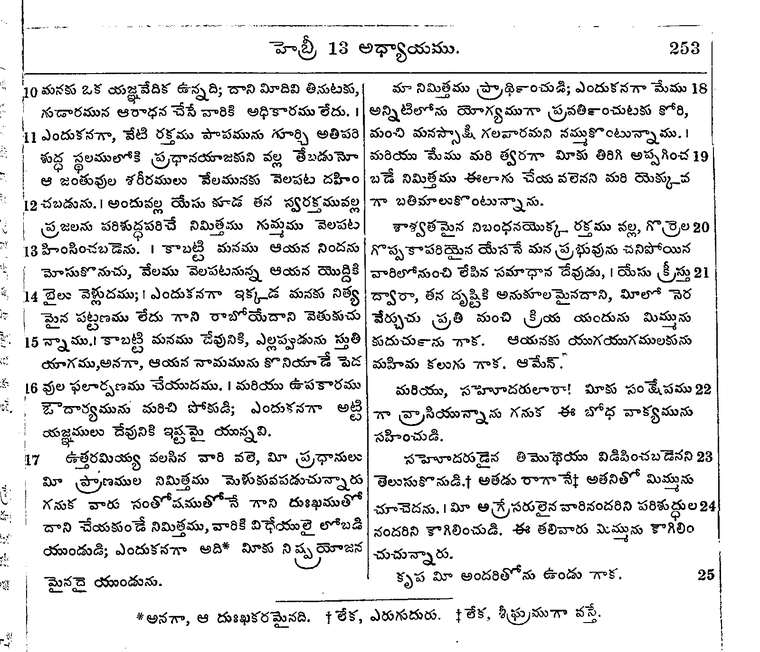 హెబ్రీ 13 అధ్యాయము. 253
10 మనకు ఒక యజ్ఞవేదిక ఉన్నది; దాని మీదివి తినుటకు,
గుడారమున ఆరాధన చేసే వారికి అధికారము లేదు. ।
11 ఎందుకనగా, వేటి రక్తము పాపమును గూర్చి అతిపరి
శుద్ధ స్థలములోకి ప్రధానయాజకుని వల్ల తేబడునో
ఆ జంతువుల శరీరములు వేలమునకు వెలపట దహిం
12 చబడును. । అందువల్ల యేసు కూడ తన స్వరక్తమువల్ల
ప్రజలను పరిశుద్ధపరిచే నిమిత్తము గుమ్మము వెలపట
13 హింసించబడెను. । కాబట్టి మనము ఆయన నిందను
మోసుకొనుచు, వేలము వెలపటనున్న ఆయన యొద్దికి
14 బైలు వెళ్లుదము; । ఎందుకనగా ఇక్కడ మనకు నిత్య
మైన పట్టణము లేదు గాని రాబోయేదాని వెతుకుచు
15 న్నాము. । కాబట్టి మనము దేవునికి, ఎల్లప్వుడును స్తుతి
యాగము, అనగా, ఆయన నామమును కొనియాడే పెద
16 వుల ఫలార్పణము చేయుదము. । మరియు ఉపకారము
ఔదార్యమును మరిచి పోకుడి; ఎందుకనగా అట్టి
యజ్ఞములు దేవునికి ఇష్టమై యున్నవి.
17 ఉత్తరమియ్య వలసిన వారి వలె, మీ ప్రధానులు
మీ ప్రాణముల నిమిత్తము మెళుకువపడుచున్నారు
గనుక వారు సంతోషముతోనే గాని దుఃఖముతో
దాని చేయకుండే నిమిత్తము, వారికి విధేయులై లోబడి
యుండుడి; ఎందుకనగా అది* మీకు నిష్ప్రయోజన
మైనదై యుండును.
మా నిమిత్తము ప్రార్థించుడి; ఎందుకనగా మేము 18
అన్నిటిలోను యోగ్యముగా ప్రవర్తించుటకు కోరి,
మంచి మనస్సాక్షి గలవారమని నమ్ముకొంటున్నాము. ।
మరియు మేము మరి త్వరగా మీకు తిరిగి అప్పగించ 19
బడే నిమిత్తము ఈలాగు చేయ వలెనని మరి యెక్కువ
గా బతిమాలుకొంటున్నాను.
శాశ్వతమైన నిబంధనయొక్క రక్తము వల్ల, గొర్రెల 20
గొప్పకాపరియైన యేసనే మన ప్రభువును చనిపోయిన
వారిలోనుంచి లేపిన సమాధాన దేవుడు, । యేసు క్రీస్తు 21
ద్వారా, తన దృష్టికి అనుకూలమైనదాని, మీలో నెర
వేర్చుచు ప్రతి మంచి క్రియ యందును మిమ్మును
కుదుచుర్చాను గాక. ఆయనకు యుగయుగములకును
మహిమ కలుగు గాక. ఆమేన్.
మరియు, సహోదరులారా! మీకు సంక్షేపము 22
గా వ్రాసియున్నాను గనుక ఈ బోధ వాక్యమును
సహించుడి.
సహోదరుడైన తిమొథెయు విడిపించబడెనని 23
తెలుసుకొనుడి.† అతడు రాగానే‡ అతనితో మిమ్మును
చూచెదను. । మీ అగ్రేసరులైన వారినందరిని పరిశుద్ధుల 24
నందరిని కాగిలించుడి. ఈ తలివారు మిమ్మును కాగిలిం
చుచున్నారు.
కృప మీ అందరితోను ఉండు గాక. 25
*అనగా, ఆ దుఃఖకరమైనది. †లేక, ఎరుగుదురు. ‡లేక, శీఘ్రముగా వస్తే.